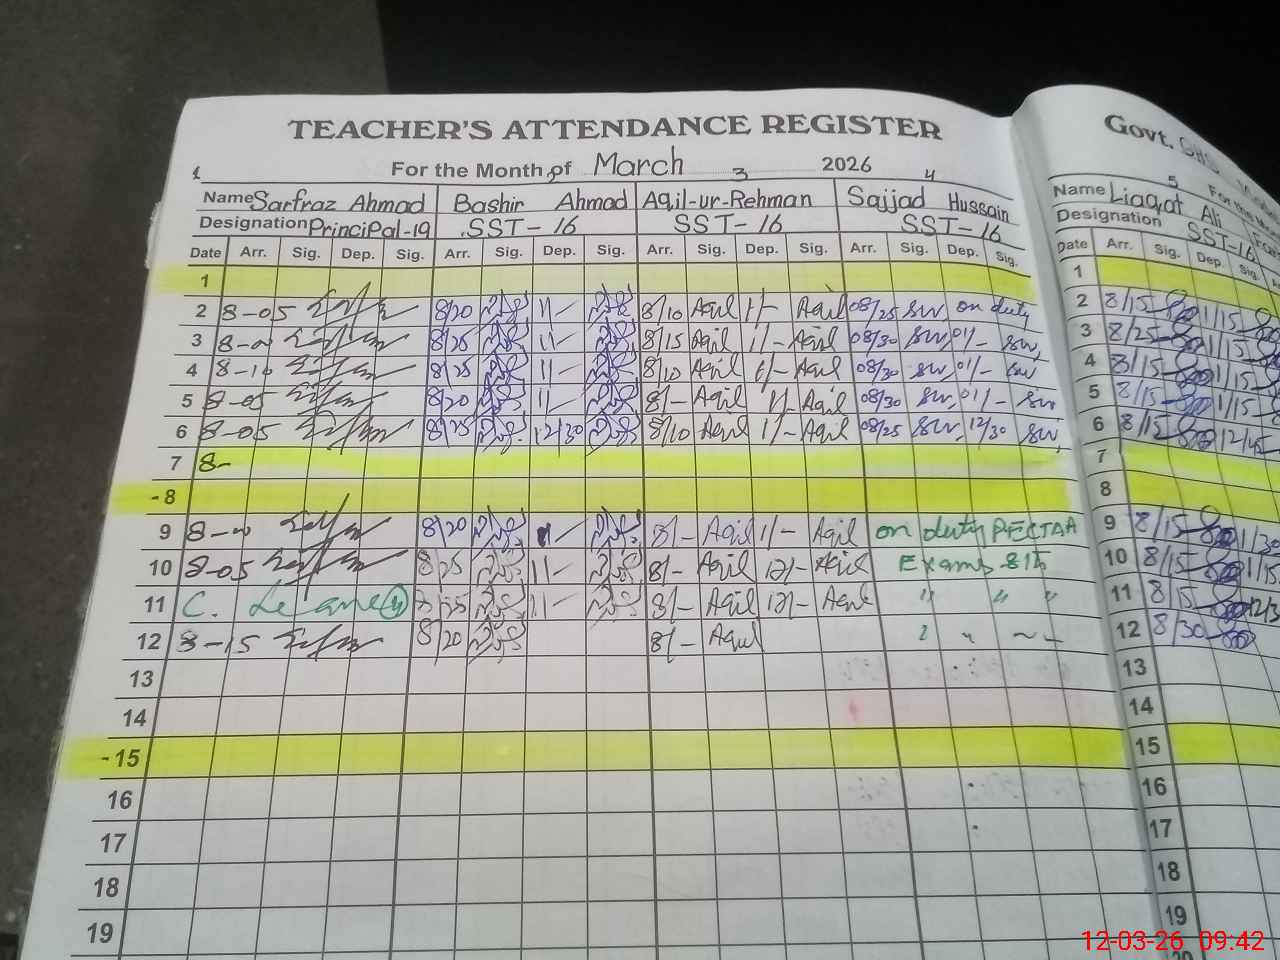 TEACHER'S ATTENDANCE REGISTER
Govt. GHS
1 For the Month of March 2026
3 4 5
For the Mon
Name Sarfraz Ahmad Bashir Ahmad Aqil-ur-Rehman Sajjad Hussain Name Liaqat Ali
Designation Principal-19 SST-16 SST-16 SST-16 Designation SST-16
Date Arr. Sig. Dep. Sig. Arr. Sig. Dep. Sig. Arr. Sig. Dep. Sig. Arr. Sig. Dep. Sig. Date Arr. Sig. Dep. Sig.
1 1
2 8-05 8/20 1/- 8/10 Aqil 1/- Aqil 08/25 SW on duty 2 8/15 1/15
3 8/25 1/- 8/15 Aqil 1/- Aqil 08/30 SW 01/- SW 3 8/25 1/15
4 8-10 8/25 1/- 8/10 Aqil 1/- Aqil 08/30 SW 01/- SW 4 8/15 1/15
5 8-05 8/20 1/- 8/- Aqil 1/- Aqil 08/30 SW 01/- SW 5 8/15 1/15
6 8-05 8/25 12/30 8/10 Aqil 1/- Aqil 08/25 SW 12/30 SW 6 8/15 12/45
7 8- 7
-8 8
9 8/20 1/- 8/- Aqil 1/- Aqil on duty PECTAA 9 8/15 1/30
10 8-05 8/25 1/- 8/- Aqil 12/- Aqil Exams 8th 10 8/15 1/15
11 C. Leave 4 8/25 1/- 8/- Aqil 12/- Aqil " " " 11 8/15
12 8-15 8/20 8/- Aqil 12 8/30
13 13
14 14
-15 15
16 16
17 17
18 18
19 19
12-03-26 09:42